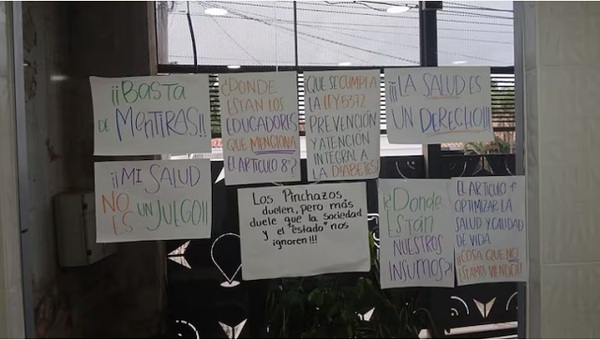 ¡¡BASTA
DE MENTIRAS!!
¿DONDE
ESTAN LOS
EDUCADORES
QUE MENCIONA
EL ARTICULO 8°?
QUE SE CUMPLA
LA LEY 5372
PREVENCIÓN
Y ATENCIÓN
INTEGRAL A
LA DIABETES!
¡¡LA SALUD ES
UN DERECHO!!!
¡¡MI SALUD
NO ES UN JUEGO!!
Los Pinchazos
duelen, pero más
duele que la sociedad
y el "estado" nos
ignoren!!!
¿¡Donde
ESTÁN
NUESTROS
INSUMOS?!
EL ARTICULO 1°
OPTIMIZAR LA
SALUD Y CALIDAD
DE VIDA
¡¡COSA QUE NO
ESTAMOS VIENDO!!